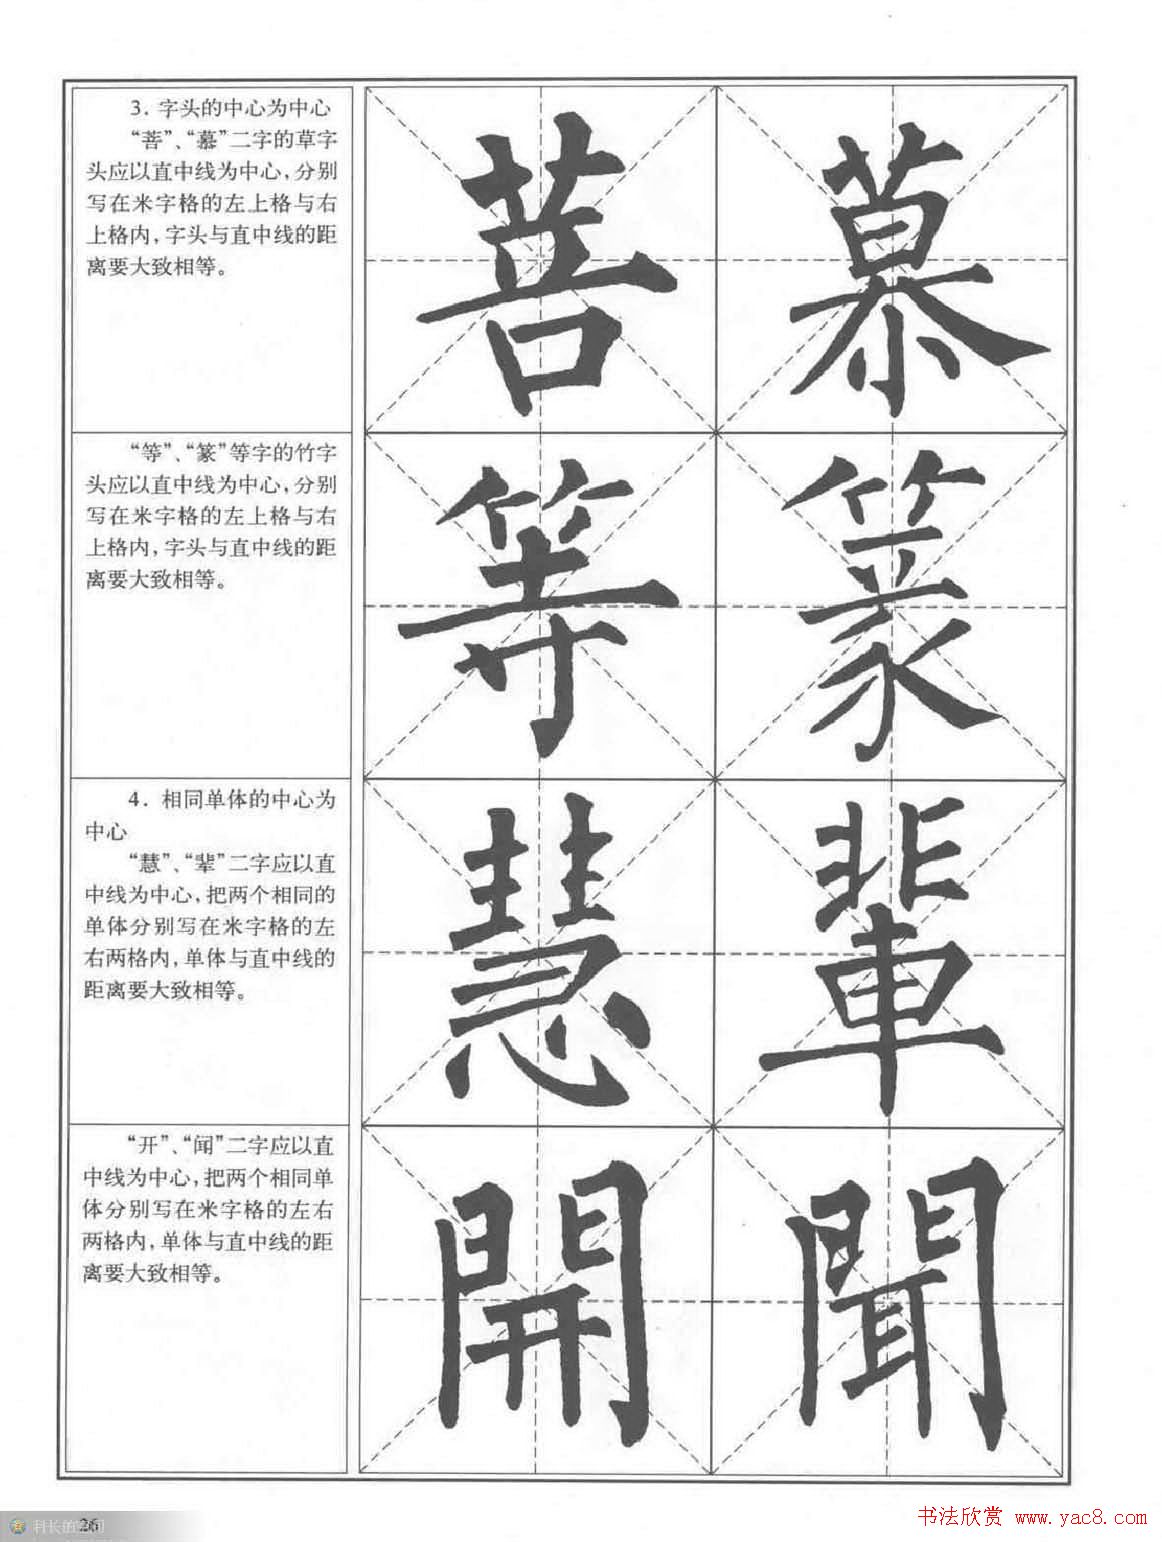 3. 字头的中心为中心
“菩”、“慕”二字的草字
头应以直中线为中心，分别
写在米字格的左上格与右
上格内，字头与直中线的距
离要大致相等。
菩 慕
“等”、“篆”等字的竹字
头应以直中线为中心，分别
写在米字格的左上格与右
上格内，字头与直中线的距
离要大致相等。
等 篆
4. 相同单体的中心为
中心
“慧”、“辈”二字应以直
中线为中心，把两个相同的
单体分别写在米字格的左
右两格内，单体与直中线的
距离要大致相等。
慧 輩
“开”、“闻”二字应以直
中线为中心，把两个相同单
体分别写在米字格的左右
两格内，单体与直中线的距
离要大致相等。
開 聞
26
书法欣赏 www.yac8.com